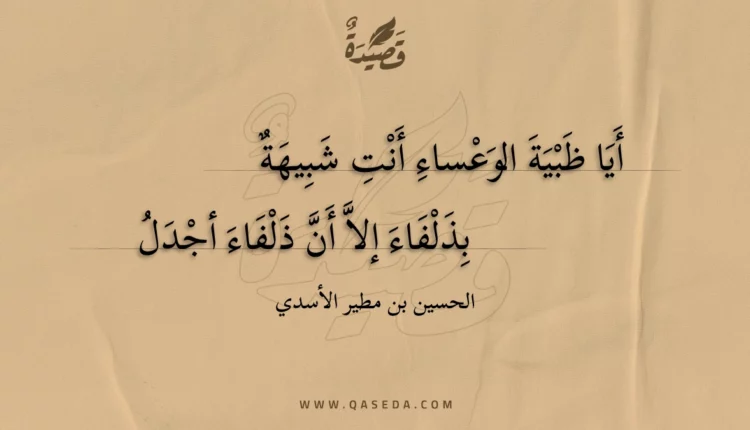 قَصِيْدَةٌ
أَيَا ظَبْيَةَ الوَعْساءِ أَنْتِ شَبِيهَةٌ
بِذَلْفَاءَ إلاَّ أَنَّ ذَلْفَاءَ أجْدَلُ
الحسين بن مطير الأسدي
WWW.QASEDA.COM